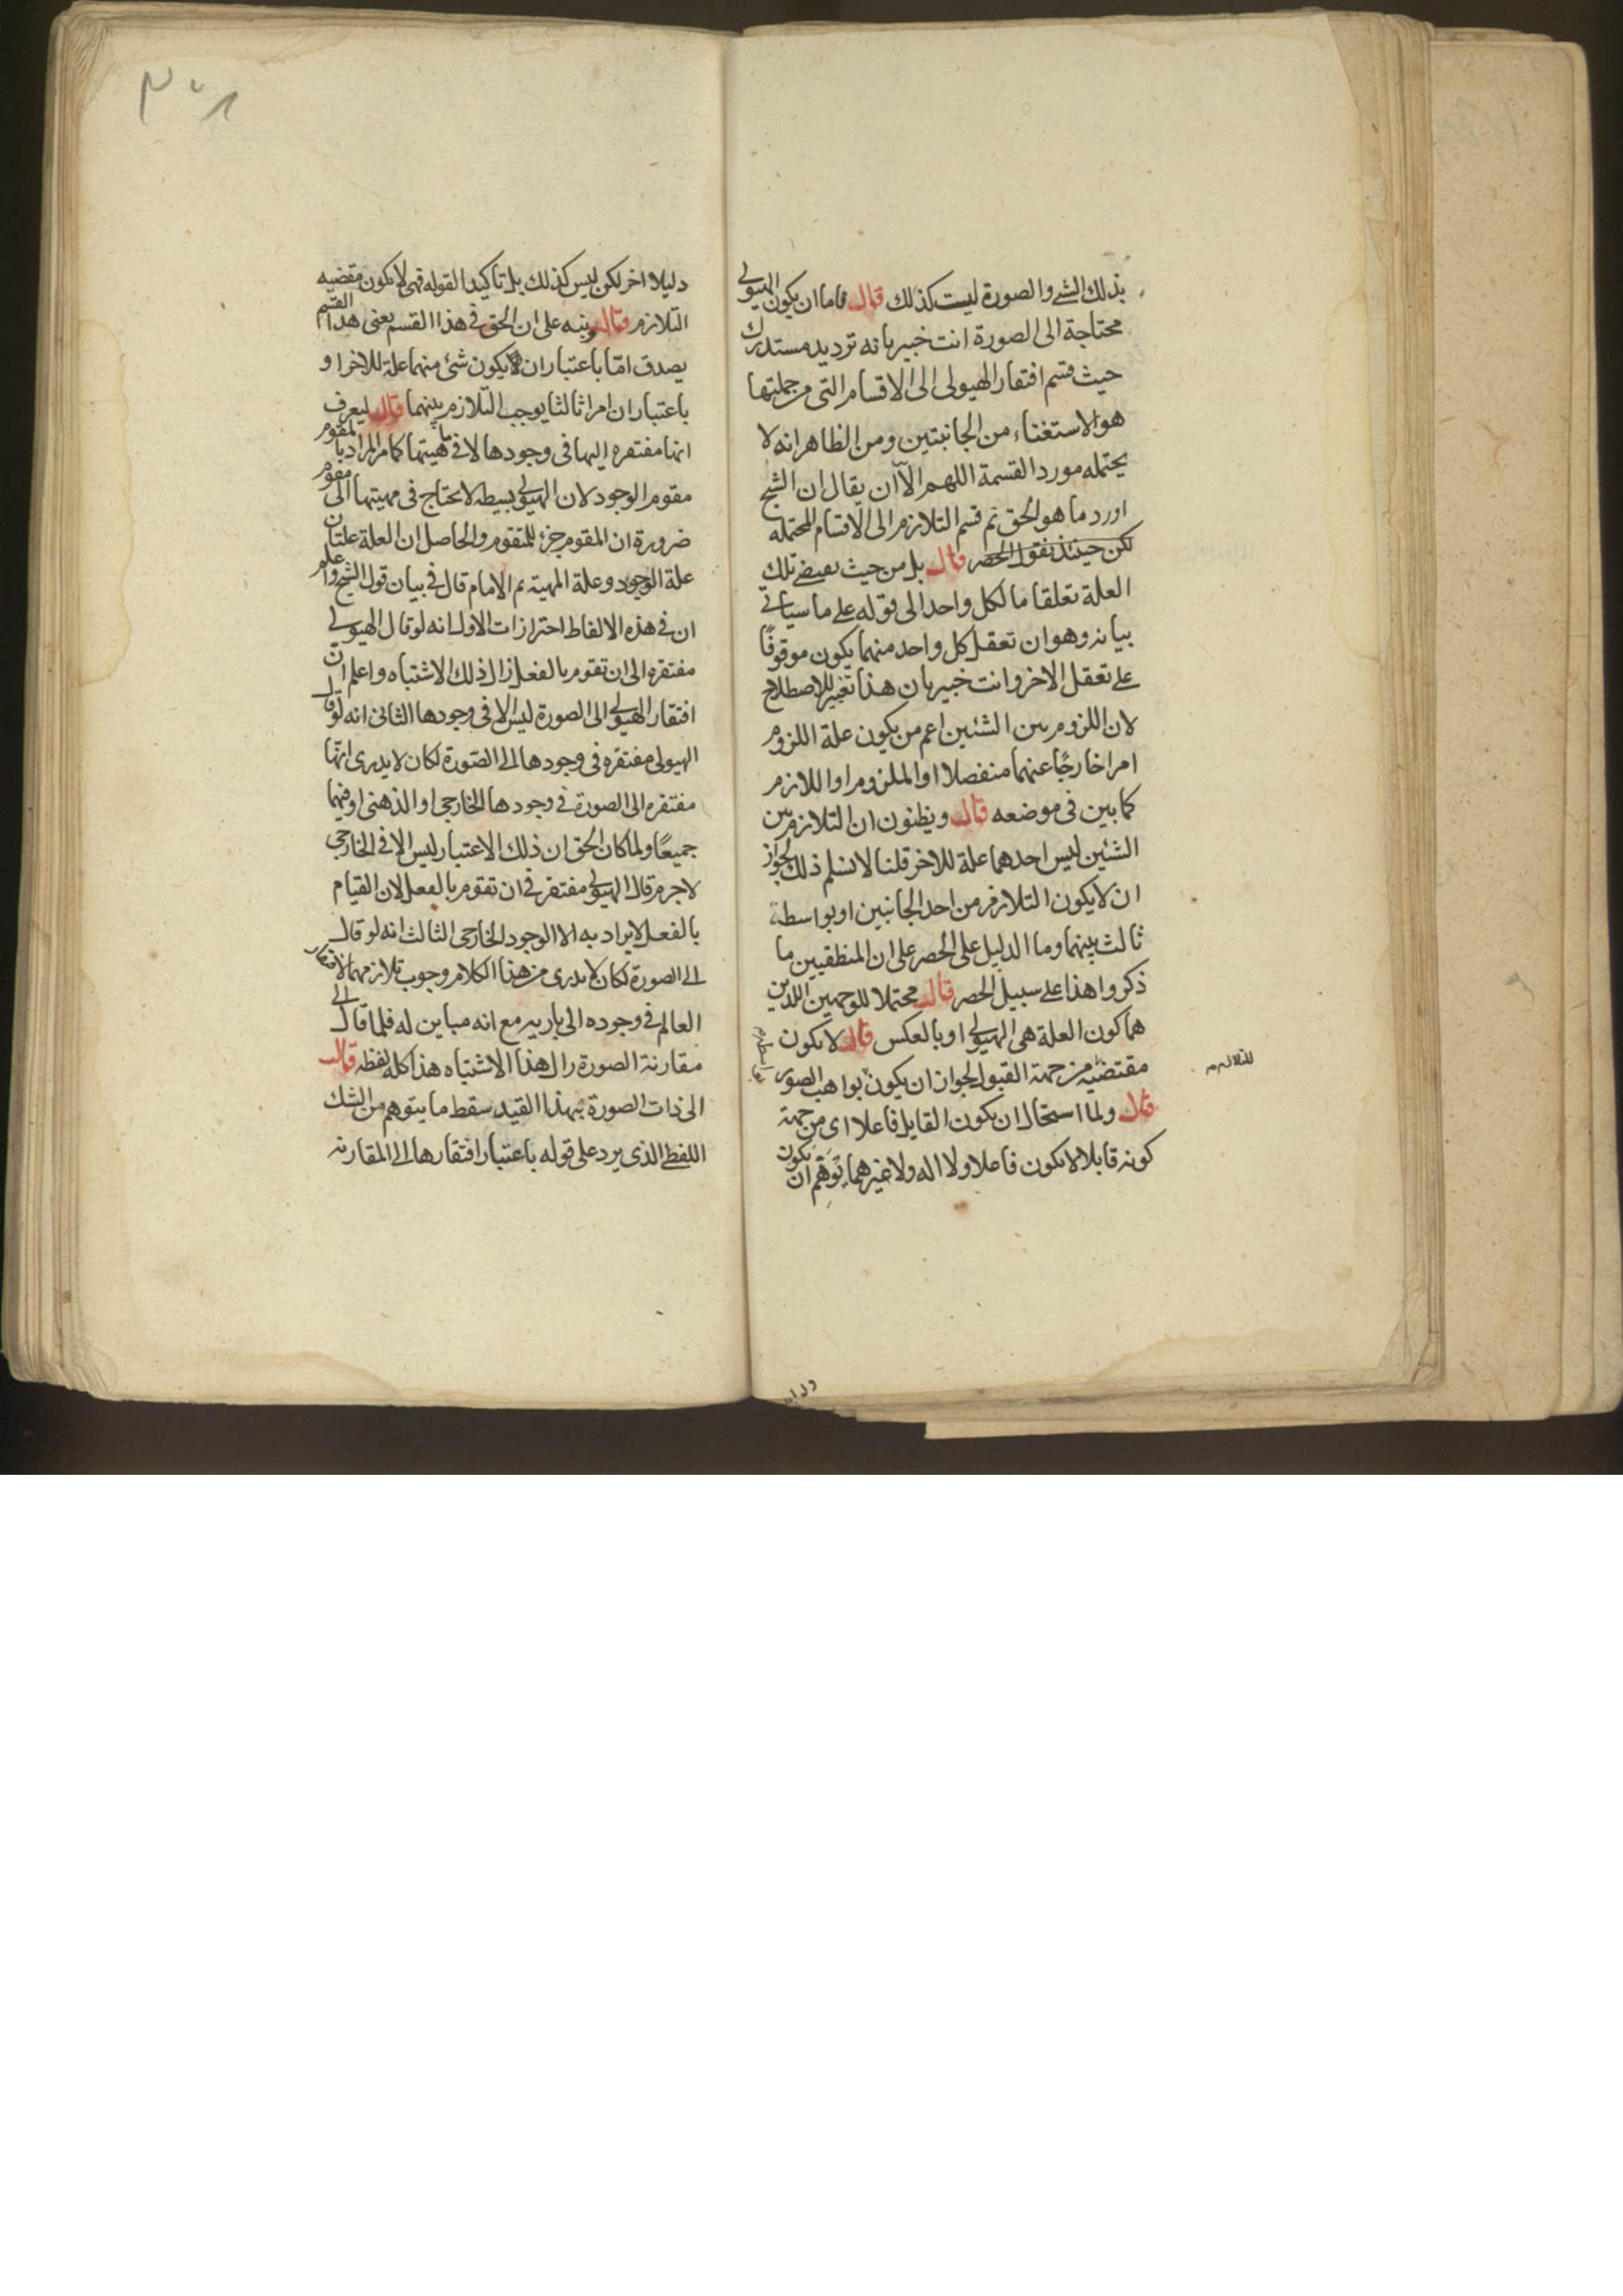 بذلك الشے والصورة ليست كذلك قال فاما ان يكون الهيولى
محتاجة الى الصورة انت خبير بانه ترديد مستدرك
حيث قسم افتقار الهيولى الى الاقسام التى من جملتها
هو الاستغناء من الجانبتين ومن الظاهر انه لا
يحتمله مورد القسمة اللهم الّا ان يقال ان الشيخ
اورد ما هو الحق ثم قسم التلازم الى الاقسام المحتمله
لكن حينئذ الحصر قال بل من حيث تلك
العلة تعلقا ما لكل واحد الى قوله على ما سياتى
بيانه وهو ان تعقل كل واحد منهما يكون موقوفًا
على تعقل الاخر وانت خبير بان هذا تغيير للاصطلاح
لان اللزوم بين الشئين اعم من يكون علة اللزوم
امرا خارجًا عنهما منفصلا او الملزوم او اللازم
كما بين فى موضعه قال ويظنون ان التلازم بين
الشئين ليس احدهما علة للاخر قلنا لا نسلم ذلك لجواز
ان لا يكون التلازم من احد الجانبين او بواسطة
ثالث بينهما وما الدليل على الحصر على ان المنطقيين ما
ذكروا هذا على سبيل الحصر قال محتملا للوجهين اللذين
هما كون العلة هى الهيولى او بالعكس قال لا يكون
مقتضيه من جهة القبول لجواز ان يكون بواهب الصور
قال ولما استحال ان يكون القابل فاعلا اى من جهة
كونه قابلا لا يكون فاعلا ولا اله ولا غيرهما يتوهم ان يكون
للتلازم
دليلا
دليلا اخر لكن ليس كذلك بل تاكيدا لقوله فهى لا يكون مقضيه
التلازم قال وبنه على ان الحق فى هذا القسم يعنى هذا القسم
يصدق امّا باعتبار ان لا يكون شئ منهما علة للاخر او
باعتبار ان امرا ثالثا يوجب التلازم بينهما قال ليعرف
انها مفتقره اليها فى وجودها لا فى ماهيتها كما مر المراد بالمقوم
مقوم الوجود لان الهيولى بسيطه لا يحتاج فى مهيتها الى مقوم
ضرورة ان المقوم جزء للمتقوم والحاصل ان العلة علتان
علة الوجود وعلة المهية ثم الامام قال فى بيان قول الشيخ واعلم
ان فى هذه الالفاظ احترازات الاول انه لو قال الهيولى
مفتقره الى ان تقوم بالفعل زال ذلك الاشتباه واعلم ان
افتقار الهيولى الى الصورة ليس الا فى وجودها الثانى انه لو قال
الهيولى مفتقره فى وجودها الى الصّورة لكان لا يدرى انها
مفتقره الى الصورة فى وجودها الخارجى او الذهنى او فيهما
جميعًا ولما كان الحق ان ذلك الاعتبار ليس الا فى الخارجى
لاجرم قال الهيولى مفتقر فى ان تقوم بالفعل لان القيام
بالفعل لا يراد به الا الوجود الخارجى الثالث انه لو قال
الى الصورة لكان لا يدرى من هذا الكلام وجوب تلازمهما لافتقار
العالم فى وجوده الى باريه مع انه مباين له فلما قال الى
مقارنة الصورة زال هذا الاشتباه هذا كله لفظه قال
الى ذات الصورة بهذا القيد سقط ما يتوهم من الشك
اللفظى الذى يرد على قوله باعتبار افتقارها الى المقارنه